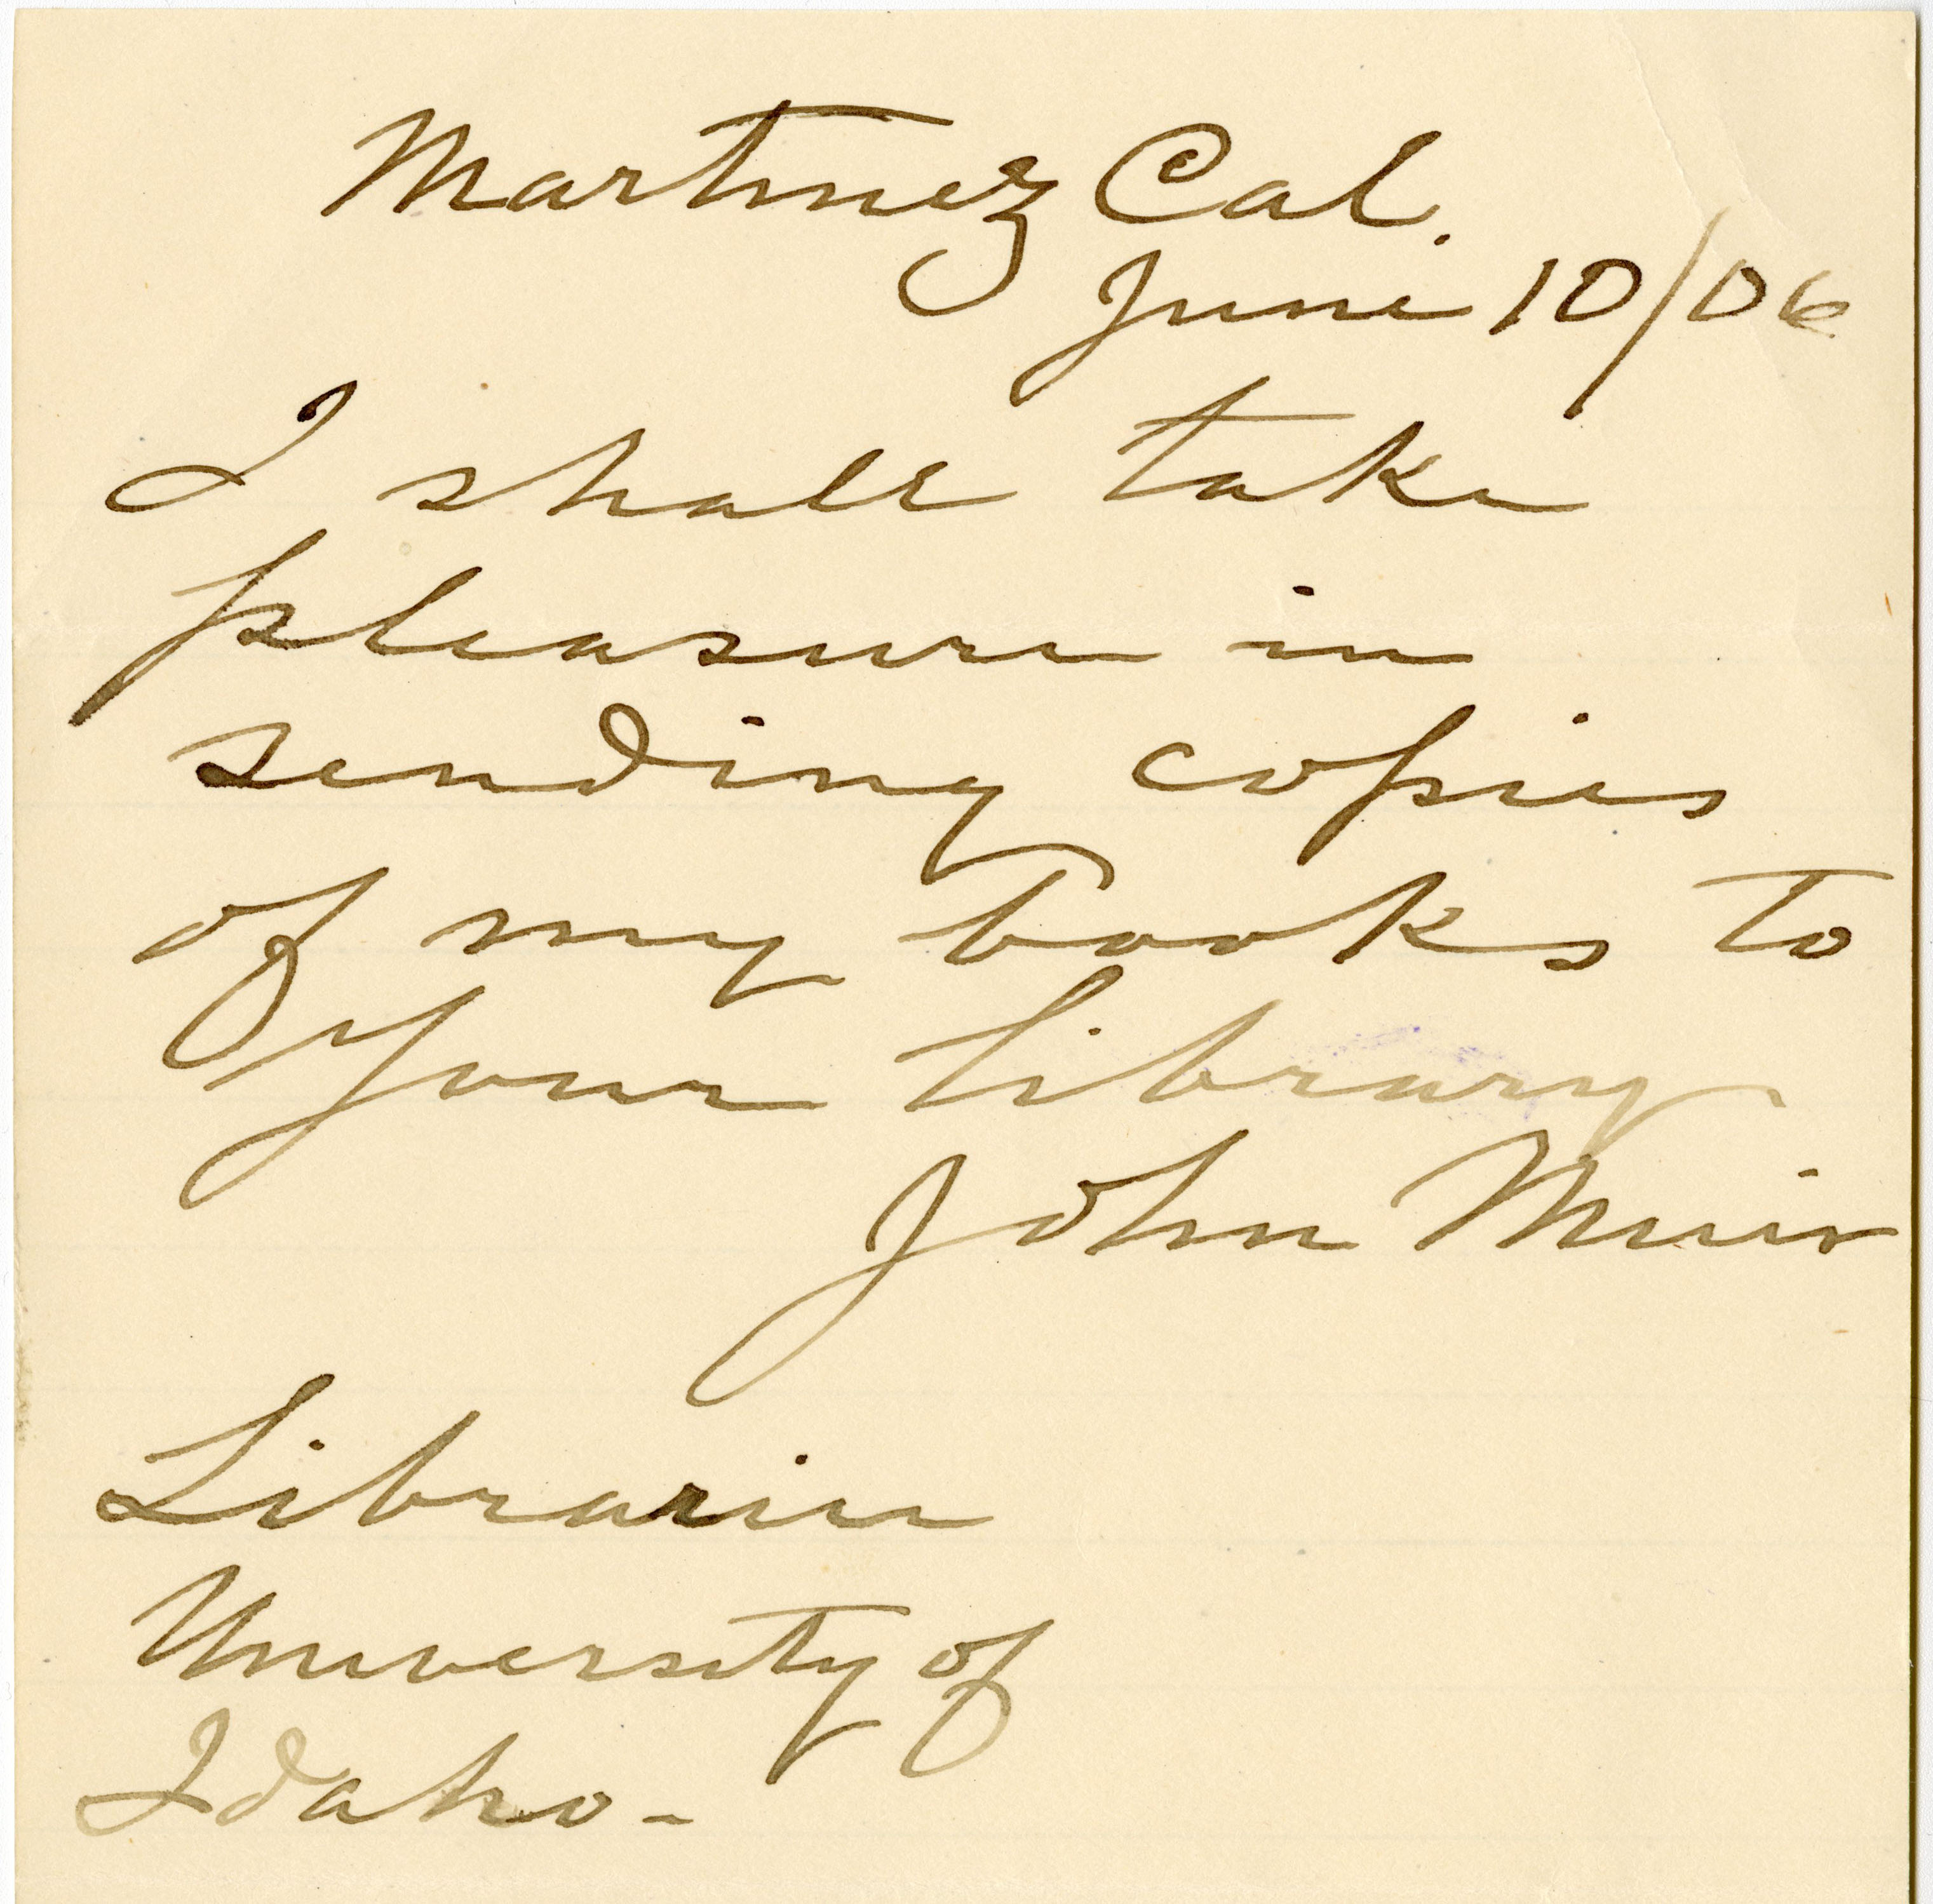 Martinez Cal.
June 10/06
I shall take
pleasure in
sending copies
of my books to
your library
John Muir
Librarian
University of
Idaho-